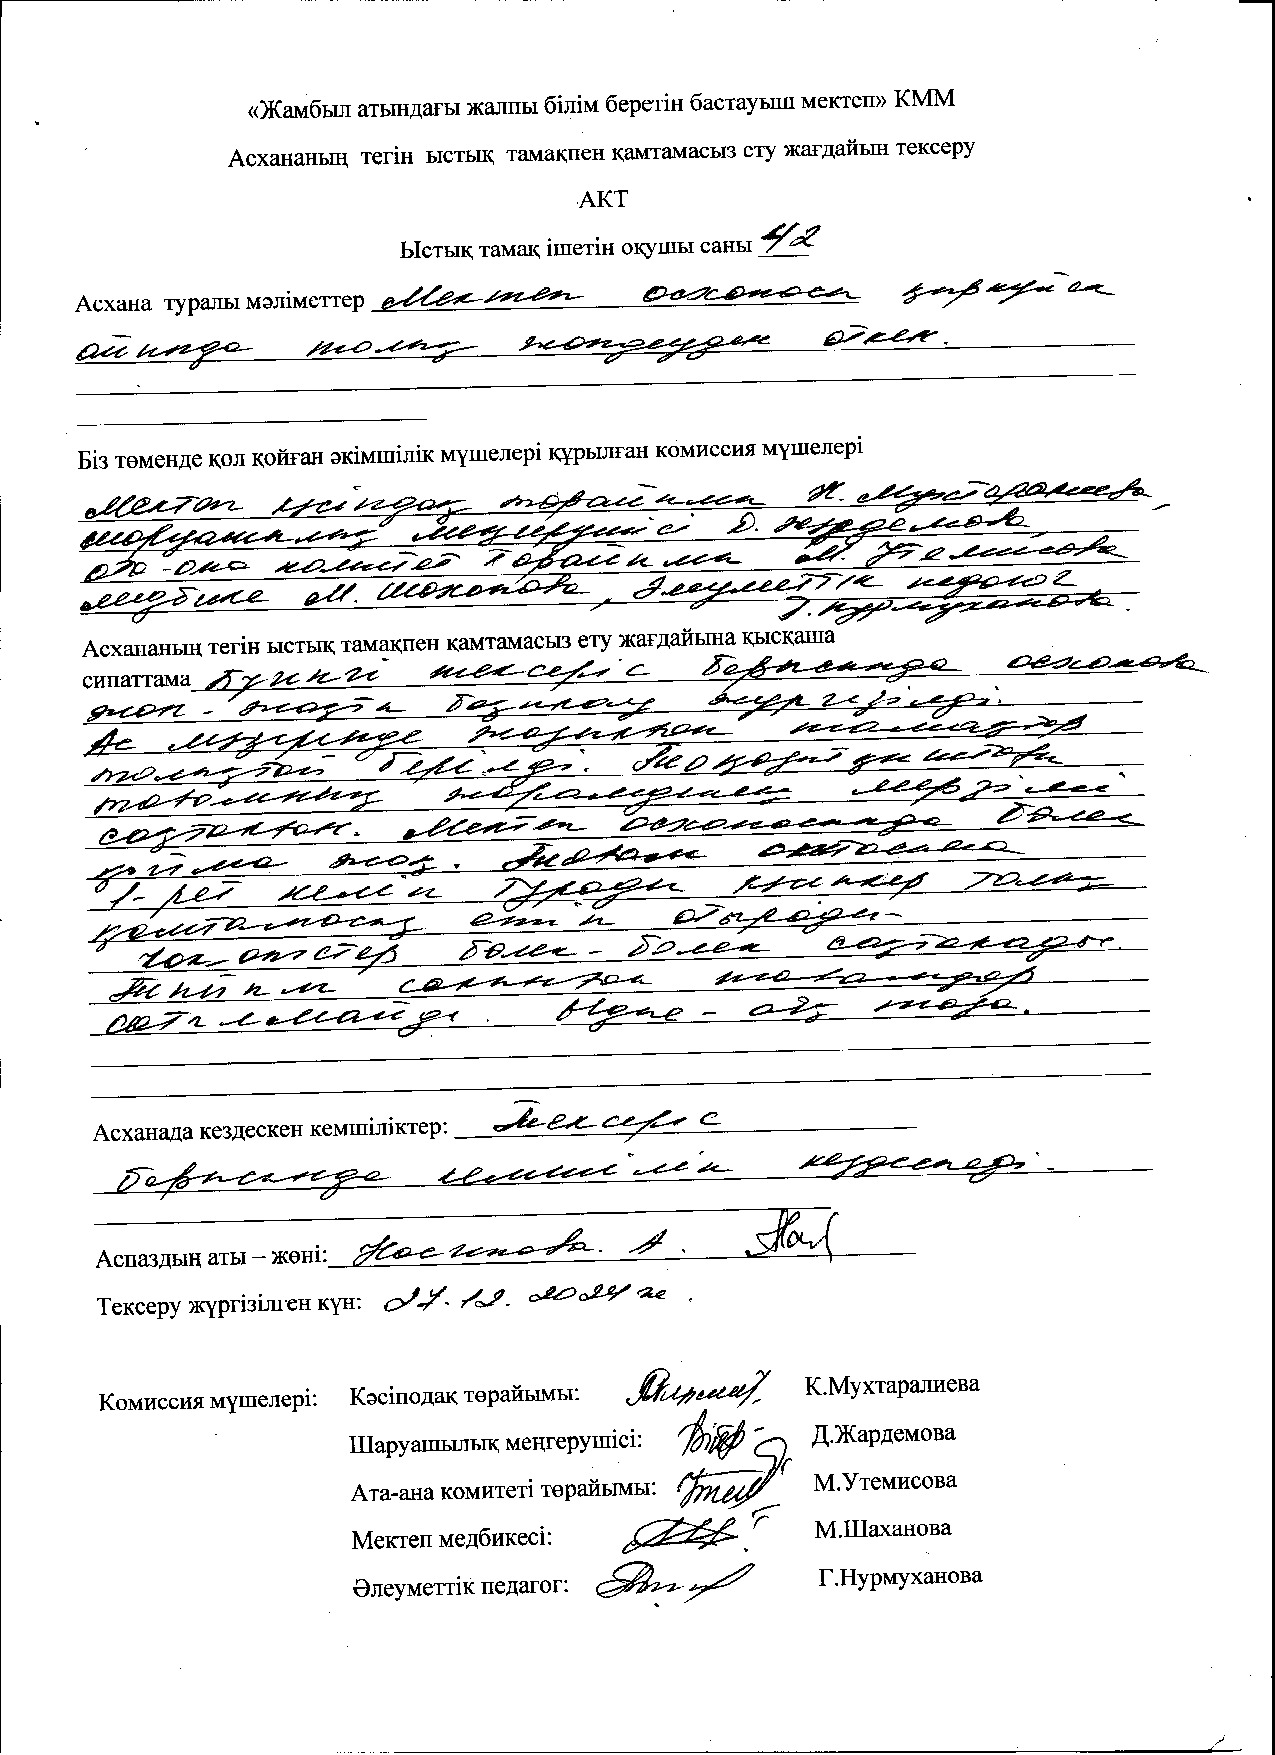 «Жамбыл атындағы жалпы білім беретін бастауыш мектеп» КММ
Асхананың тегін ыстық тамақпен қамтамасыз ету жағдайын тексеру
АКТ
Ыстық тамақ ішетін оқушы саны 42
Асхана туралы мәліметтер Мектеп асханасы қыркүйек
айында толық жөндеуден өткен.
Біз төменде қол қойған әкімшілік мүшелері құрылған комиссия мүшелері
Мектеп кәсіподақ төрайымы К. Мухтаралиева,
шаруашылық меңгерушісі Д. Жардемова,
ата-ана комитет төрайымы М. Утемисова
медбике М. Шаханова, Әлеуметтік педагог
Г. Нурмуханова.
Асхананың тегін ыстық тамақпен қамтамасыз ету жағдайына қысқаша
сипаттама Бүгінгі тексеріс барысында асханада
жан-жақты бақылау жүргізілді.
Ас мәзірінде жазылған тамақтар
толықтай берілді.
тағамның жарамдылық мерзімі
сақталған. Мектеп асханасында бөлек
қойма жоқ. Тағам аптасына
1-рет келіп тұрады кәсіпкер толық
қамтамасыз етіп отырады.
бөлек-бөлек сақталады.
Тыйым салынған тағамдар
сатылмайды. Ыдыс-аяқ таза.
Асханада кездескен кемшіліктер: Тексеріс
барысында кемшілік кездеспеді.
Аспаздың аты – жөні: Насипова. А.
Тексеру жүргізілген күн: 27.12.2024 ж.
Комиссия мүшелері: Кәсіподақ төрайымы: К.Мухтаралиева
Шаруашылық меңгерушісі: Д.Жардемова
Ата-ана комитеті төрайымы: М.Утемисова
Мектеп медбикесі: М.Шаханова
Әлеуметтік педагог: Г.Нурмуханова